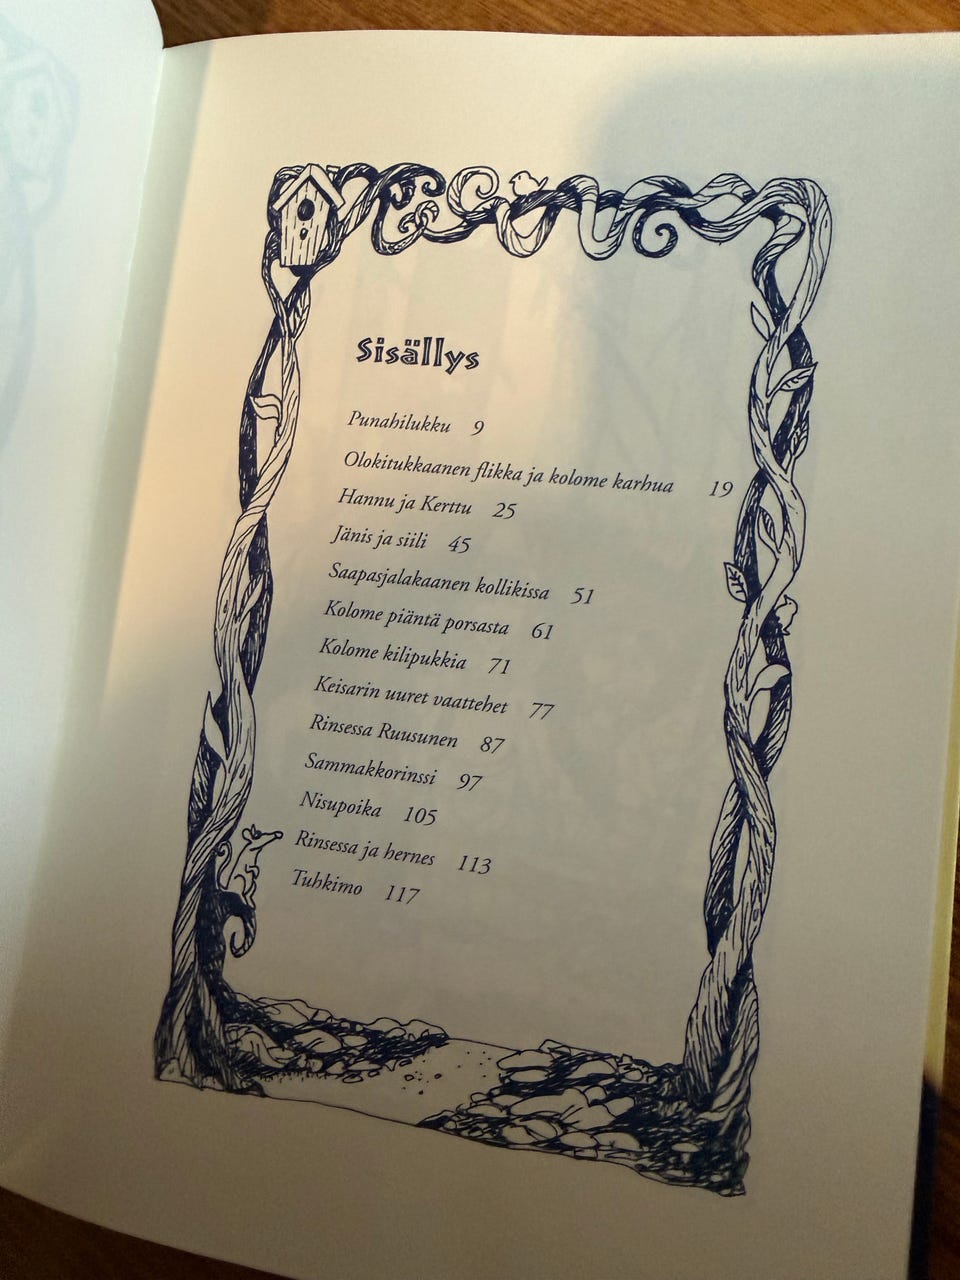 Sisällys
Punahilukku 9
Olokitukkaanen flikka ja kolome karhua 19
Hannu ja Kerttu 25
Jänis ja siili 45
Saapasjalakaanen kollikissa 51
Kolome piäntä porsasta 61
Kolome kilipukkia 71
Keisarin uuret vaattehet 77
Rinsessa Ruusunen 87
Sammakkorinssi 97
Nisupoika 105
Rinsessa ja hernes 113
Tuhkimo 117